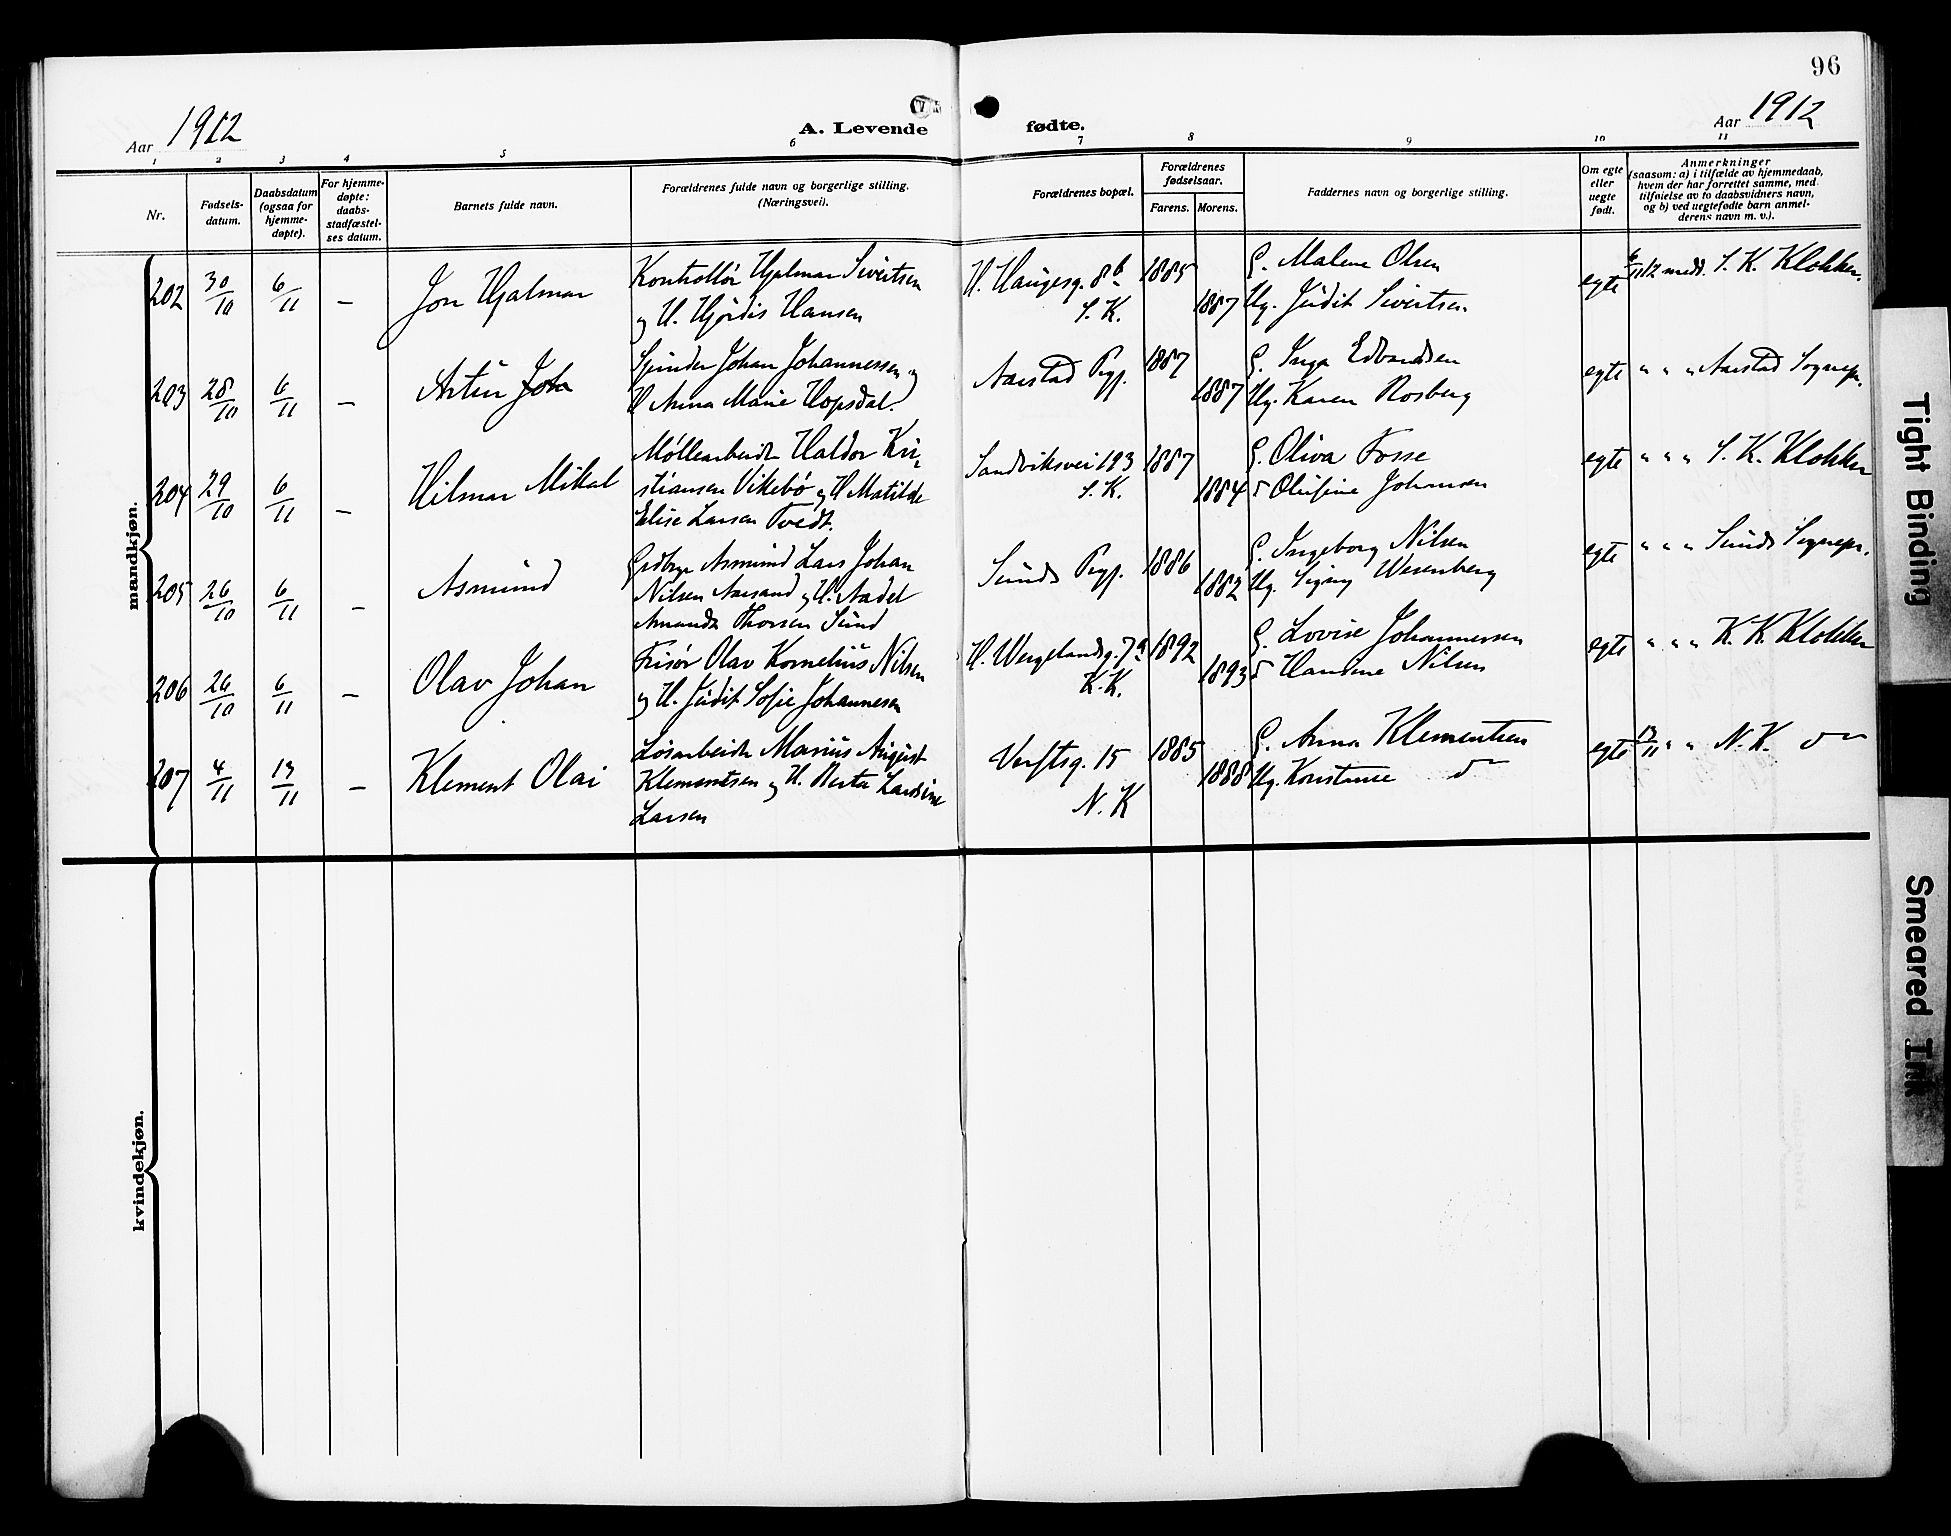 96
Aar 1912
A. Levende fødte.
Aar 1912
1 2 3 4 5 6 7 8 9 10 11
Nr.
Fødsels-
datum.
Daabsdatum
(ogsaa for
hjemme-
døpte).
For hjemme-
døpte:
daabs-
stadfæstel-
ses datum.
Barnets fulde navn.
Forældrenes fulde navn og borgerlige stilling.
(Næringsvei).
Forældrenes bopæl.
Forældrenes
fødselsaar.
Farens. Morens.
Faddernes navn og borgerlige stilling.
Om egte
eller
uegte
født.
Anmerkninger
(saasom: a) i tilfælde av hjemmedaab,
hvem der har forrettet samme, med
tilføielse av to daabsvidners navn,
og b) ved uegtefødte barn anmel-
derens navn m. v.).
mandkjøn.
202 30/10 6/11 — Jon Hjalmar
Kontrollør Hjalmar Sivertsen
og H. Hjördis Hansen
H. Haugesg. 8b
S. K.
1885
1887
G. Malene Olsen
Ug. Judit Sivertsen
egte
6/11 12 medd. S. K. Klokker.
203 28/10 6/11 — Artur Joh
Johan Johannessen og
H Anna Marie Hopsdal.
Aarstad Pgj.
1887
1887
G. Inga Edvardsen
Ug. Karen Rosberg
egte
" " " Aarstad Sognepr.
204 29/10 6/11 — Hilmar Mikal
Møllearbeider Haldor Kri-
stiansen Vikebø og H Matilde
Elise Larsen Tvedt.
Sandviksvei 193
S. K.
1887
1884
G. Oliva Fosse
Johansen
egte
" " " S. K. Klokker
205 26/10 6/11 — Asmund
Asmund Lars Johan
Nilsen Aarsand og H.
Amanda Thorsen Sund
Sunds Pgj.
1886
1882
G. Ingeborg Nilsen
Ug. Signy Wesenberg
egte
" " " Sunds Sognepr.
206 26/10 6/11 — Olav Johan
Frisør Olav Kornelius Nilsen
og H. Judit Sofie Johannesen
H. Wergelandsg. 7a
K. K.
1892
1893
G. Lovise Johannessen
Hansine Nilsen
egte
" " " K. K. Klokker
207 4/11 13/11 — Klement Olai
Løsarbeider Marius August
Klementsen og H. Berta Lardine
Larsen
Verftsg. 15
N. K
1885
1888
G. Anna Klementsen
Ug. Konstanse do
egte
13/11 " " N. K. do
kvindekjøn.
Tight Binding
Smeared Ink